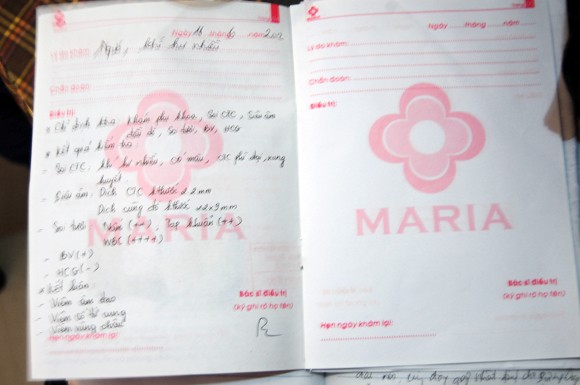 Ngày 16 tháng 6 năm 201
Lý do khám: Ngứa, khí hư nhiều
Chẩn đoán:
Điều trị:
* Chỉ định khám: Khám phụ khoa, Soi CTC, Siêu âm
đầu dò, Soi tươi, BV, HCG
* Kết quả kiểm tra:
- Soi CTC: khí hư nhiều, có máu, CTC phì đại, xung
huyết
- Siêu âm: Dịch CTC kthước 2.2mm
Dịch cùng đồ kthước 22x9mm
- Soi tươi: Nấm (++), Tạp khuẩn (++)
WBC (++++)
- BV(+)
- HCG(-)
* Kết luận:
- Viêm âm đạo
- Viêm cổ tử cung
- Viêm vùng chậu
Bác sĩ điều trị
(ký ghi rõ họ tên)
Hẹn ngày khám lại:
MARIA
Trang
MARIA
Ngày tháng năm
Lý do khám:
Chẩn đoán:
Điều trị:
MARIA
Bác sĩ điều trị
(ký ghi rõ họ tên)
Hẹn ngày khám lại: